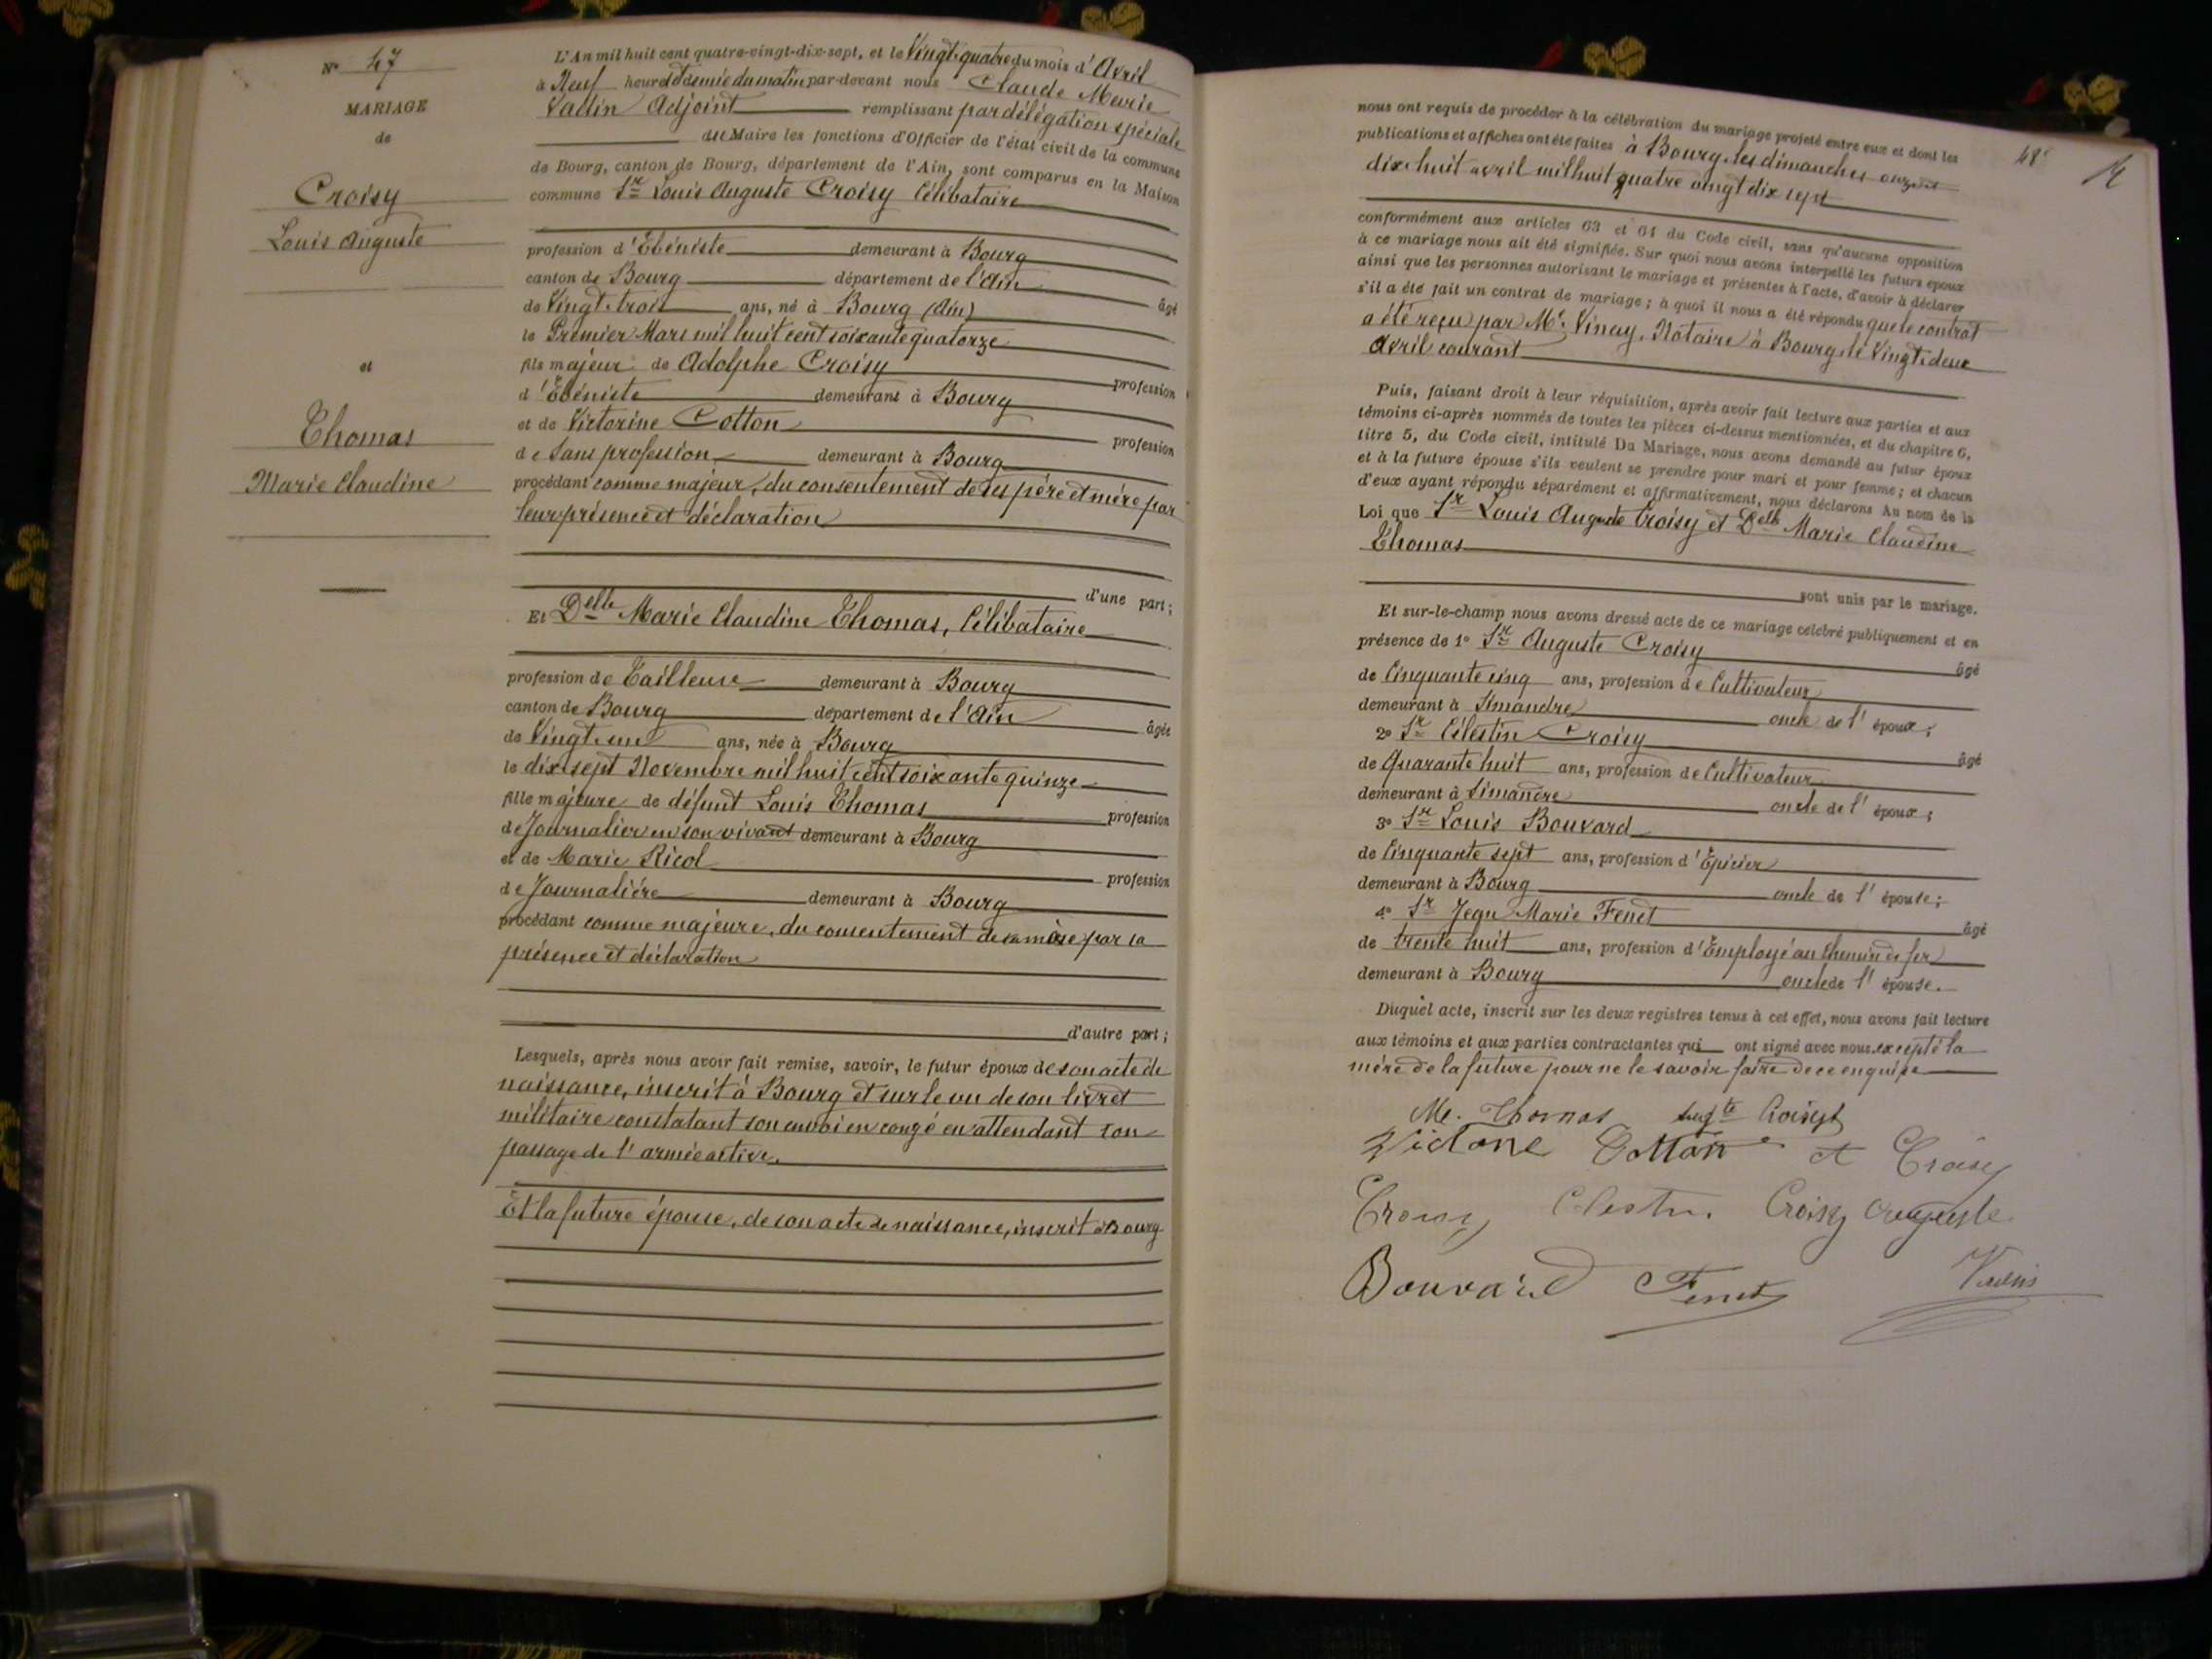 N° 47
MARIAGE
de
Croisy
Louis Auguste
et
Thomas
Marie Claudine
L'An mil huit cent quatre-vingt-dix-sept, et le Vingt-quatre du mois d'Avril
à Neuf heures et demie du matin par-devant nous Claude Marie
Vadin Adjoint remplissant par délégation spéciale
du Maire les fonctions d'Officier de l'état civil de la commune
de Bourg, canton de Bourg, département de l'Ain, sont comparus en la Maison
commune Sr Louis Auguste Croisy Célibataire
profession d'Ebéniste demeurant à Bourg
canton de Bourg département de l'Ain âgé
de Vingt-trois ans, né à Bourg (Ain)
le Premier Mars mil huit cent soixante quatorze
fils majeur de Adolphe Croisy profession
d'Ebéniste demeurant à Bourg
et de Victorine Cotton profession
de Sans profession demeurant à Bourg
procédant comme majeur, du consentement de ses père et mère par
leur présence et déclaration
d'une part;
Et Delle Marie Claudine Thomas, Célibataire
profession de Tailleuse demeurant à Bourg
canton de Bourg département de l'Ain âgée
de Vingt-un ans, née à Bourg
le dix-sept Novembre mil huit cent soixante quinze
fille majeure de défunt Louis Thomas profession
de Journalier en son vivant demeurant à Bourg
et de Marie Ricol profession
de Journalière demeurant à Bourg
procédant comme majeure, du consentement de sa mère par sa
présence et déclaration
d'autre part;
Lesquels, après nous avoir fait remise, savoir, le futur époux de son acte de
naissance, inscrit à Bourg et sur le vu de son livret
militaire constatant son envoi en congé en attendant son
passage de l'armée active.
Et la future épouse, de son acte de naissance, inscrit à Bourg
48e
nous ont requis de procéder à la célébration du mariage projeté entre eux et dont les
publications et affiches ont été faites à Bourg, les dimanches onze et
dix-huit avril mil huit quatre vingt dix sept
conformément aux articles 63 et 64 du Code civil, sans qu'aucune opposition
à ce mariage nous ait été signifiée. Sur quoi nous avons interpellé les futurs époux
ainsi que les personnes autorisant le mariage et présentes à l'acte, d'avoir à déclarer
s'il a été fait un contrat de mariage; à quoi il nous a été répondu que le contrat
a été reçu par Me Vinay, Notaire à Bourg, le Vingt-deux
Avril courant
Puis, faisant droit à leur réquisition, après avoir fait lecture aux parties et aux
témoins ci-après nommés de toutes les pièces ci-dessus mentionnées, et du chapitre 6,
titre 5, du Code civil, intitulé Du Mariage, nous avons demandé au futur époux
et à la future épouse s'ils veulent se prendre pour mari et pour femme; et chacun
d'eux ayant répondu séparément et affirmativement, nous déclarons Au nom de la
Loi que Sr Louis Auguste Croisy et Delle Marie Claudine
Thomas
sont unis par le mariage.
Et sur-le-champ nous avons dressé acte de ce mariage célébré publiquement et en
présence de 1° Sr Auguste Croisy âgé
de Cinquante cinq ans, profession de Cultivateur
demeurant à Simandre oncle de l'époux;
2° Sr Célestin Croisy âgé
de Quarante huit ans, profession de Cultivateur
demeurant à Simandre oncle de l'époux;
3° Sr Louis Bouvard
de Cinquante sept ans, profession d'Epicier
demeurant à Bourg oncle de l'épouse;
4° Sr Jean Marie Fenet âgé
de trente huit ans, profession d'Employé au Chemin de fer
demeurant à Bourg oncle de l'épouse.
Duquel acte, inscrit sur les deux registres tenus à cet effet, nous avons fait lecture
aux témoins et aux parties contractantes qui ont signé avec nous excepté la
mère de la future pour ne le savoir faire de ce enquise
M. Thomas Augte Croisy
Victorine Cotton A Croisy
Croisy Celestin Croisy Auguste
Bouvard Fenet Vadin